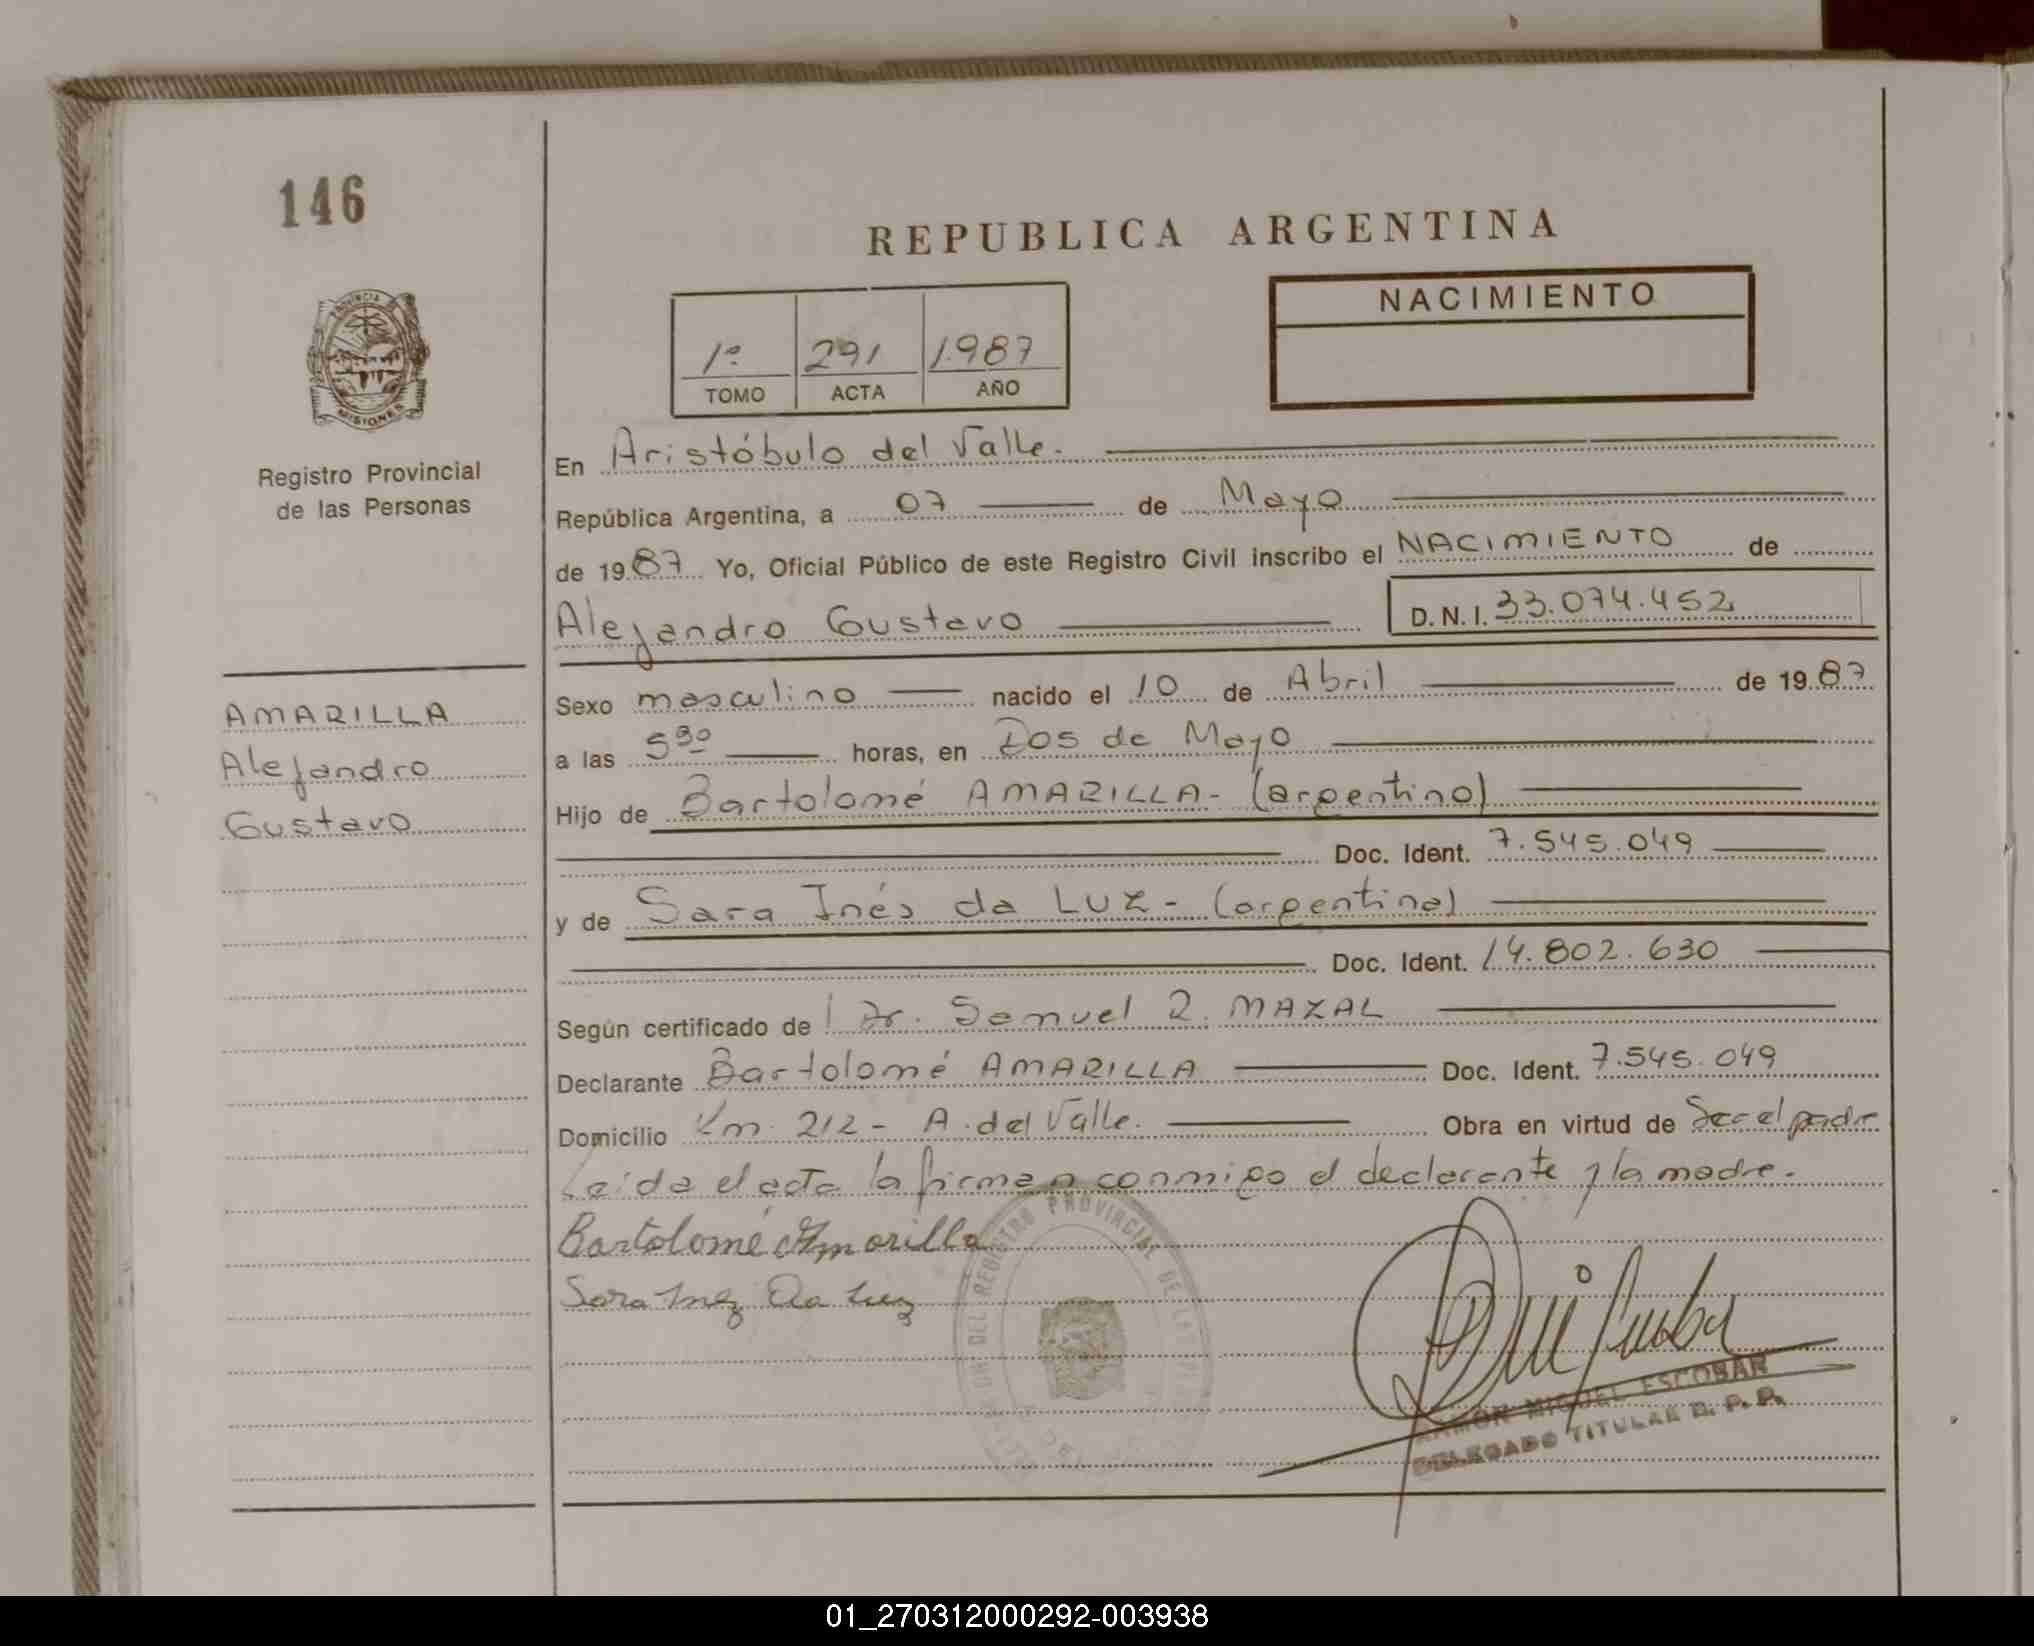 146
PROVINCIA
MISIONES
Registro Provincial
de las Personas
AMARILLA
Alejandro
Gustavo
REPUBLICA ARGENTINA
1º 291 1987
TOMO ACTA AÑO
NACIMIENTO
En Aristóbulo del Valle.
República Argentina, a 07 de Mayo
de 1987 Yo, Oficial Público de este Registro Civil inscribo el NACIMIENTO de
Alejandro Gustavo D.N.I. 33.074.452
Sexo masculino nacido el 10 de Abril de 1987
a las 5 30 horas, en Dos de Mayo
Hijo de Bartolomé AMARILLA- (argentino)
Doc. Ident. 7.545.049
y de Sara Inés da LUZ- (argentina)
Doc. Ident. 14.802.630
Según certificado de Dr. Samuel R. MAZAL
Declarante Bartolomé AMARILLA Doc. Ident. 7.545.049
Domicilio Km. 212- A. del Valle. Obra en virtud de Ser el padre
Leída el acta la firman conmigo el declarante y la madre.
Bartolomé Amarilla
Sara Inez Da Luz
DEL REGISTRO PROVINCIAL DE LA
RAMON MIGUEL ESCOBAR
DELEGADO TITULAR R. P. P.
01_270312000292-003938